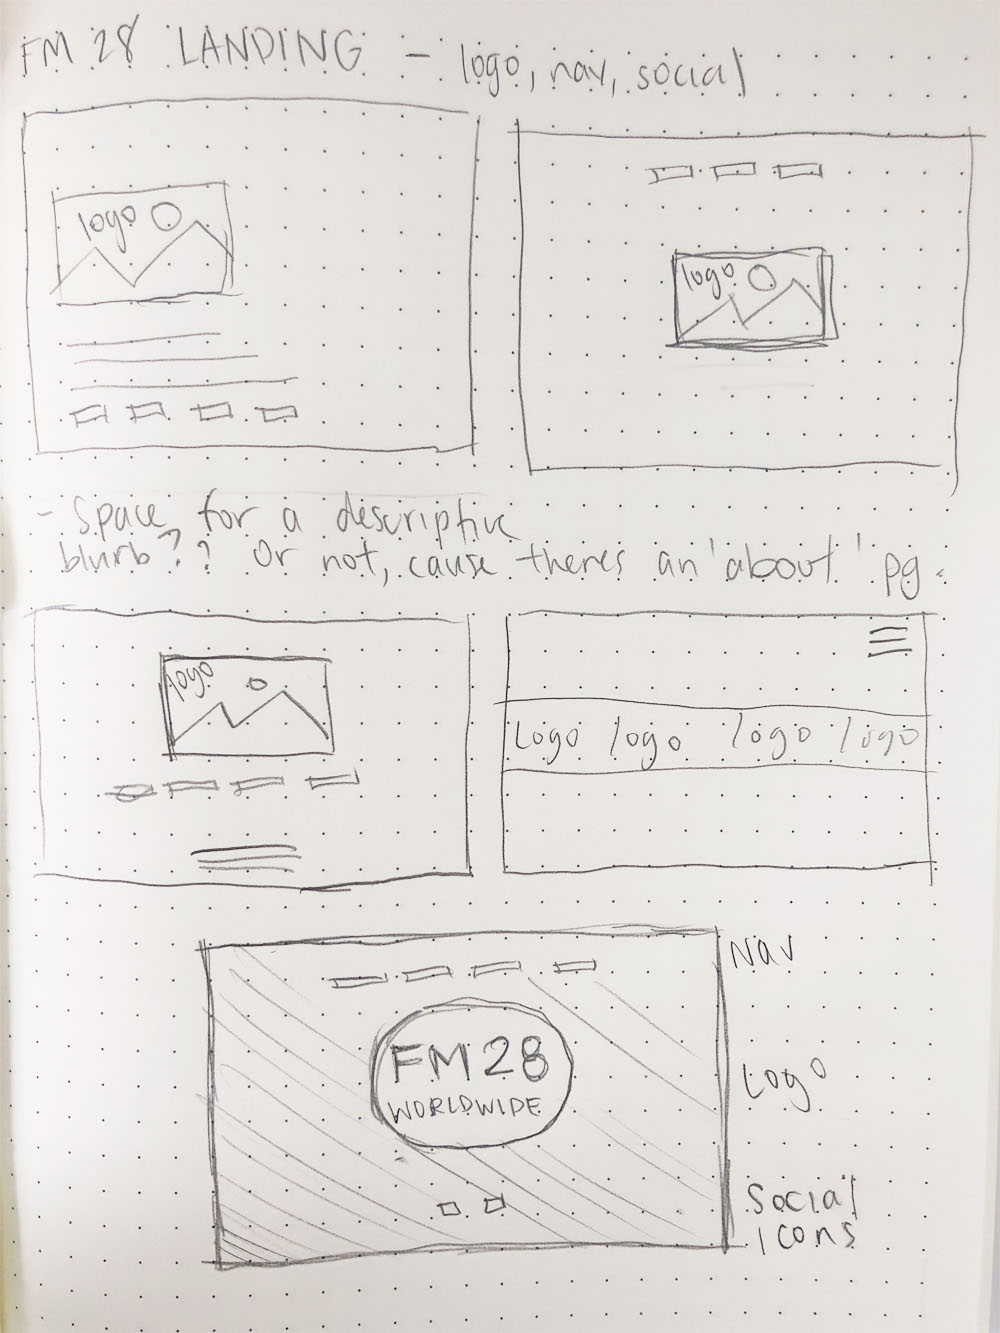 FM 28 LANDING - logo, nav, social
logo
logo
- Space for a descriptive
blurb?? Or not, cause theres an 'about' pg.
logo
Logo logo logo logo
Nav
FM 28
WORLDWIDE
Logo
Social
icons